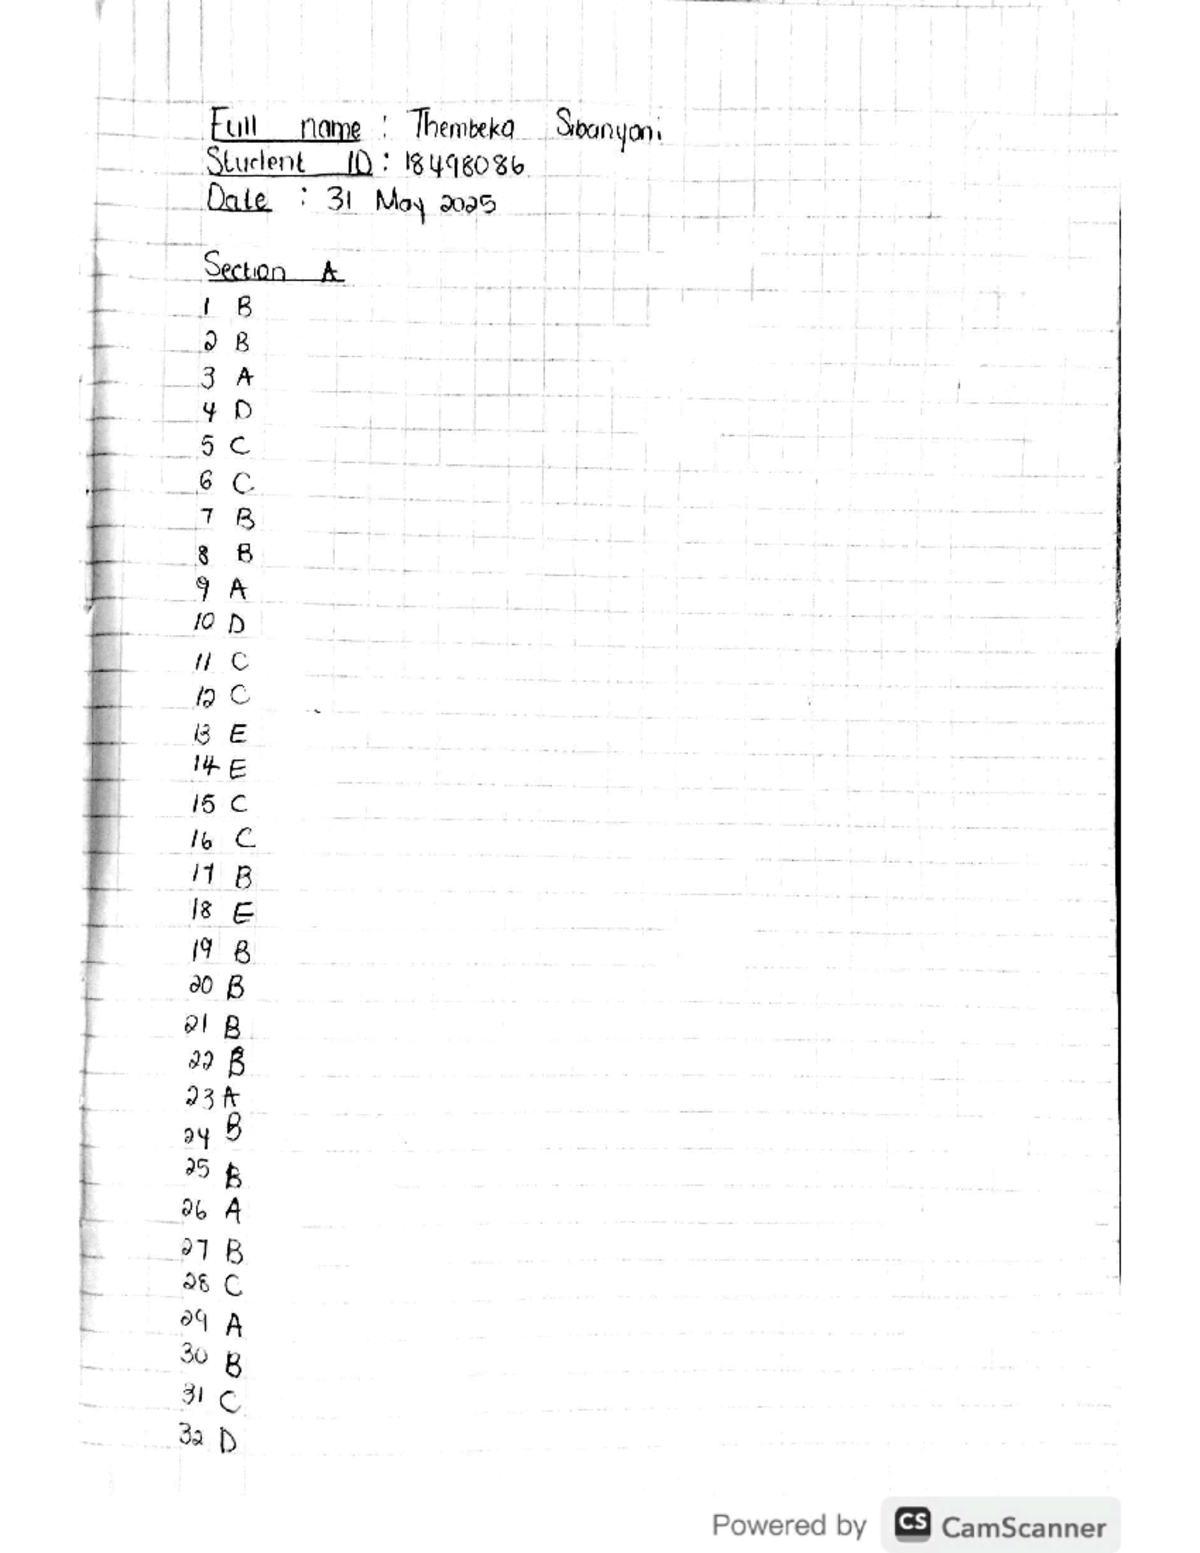 Full name : Thembeka Sibanyoni
Student ID : 18498086
Date : 31 May 2025
Section A
1 B
2 B
3 A
4 D
5 C
6 C
7 B
8 B
9 A
10 D
11 C
12 C
13 E
14 E
15 C
16 C
17 B
18 E
19 B
20 B
21 B
22 B
23 A
24 B
25 B
26 A
27 B
28 C
29 A
30 B
31 C
32 D
Powered by CS CamScanner